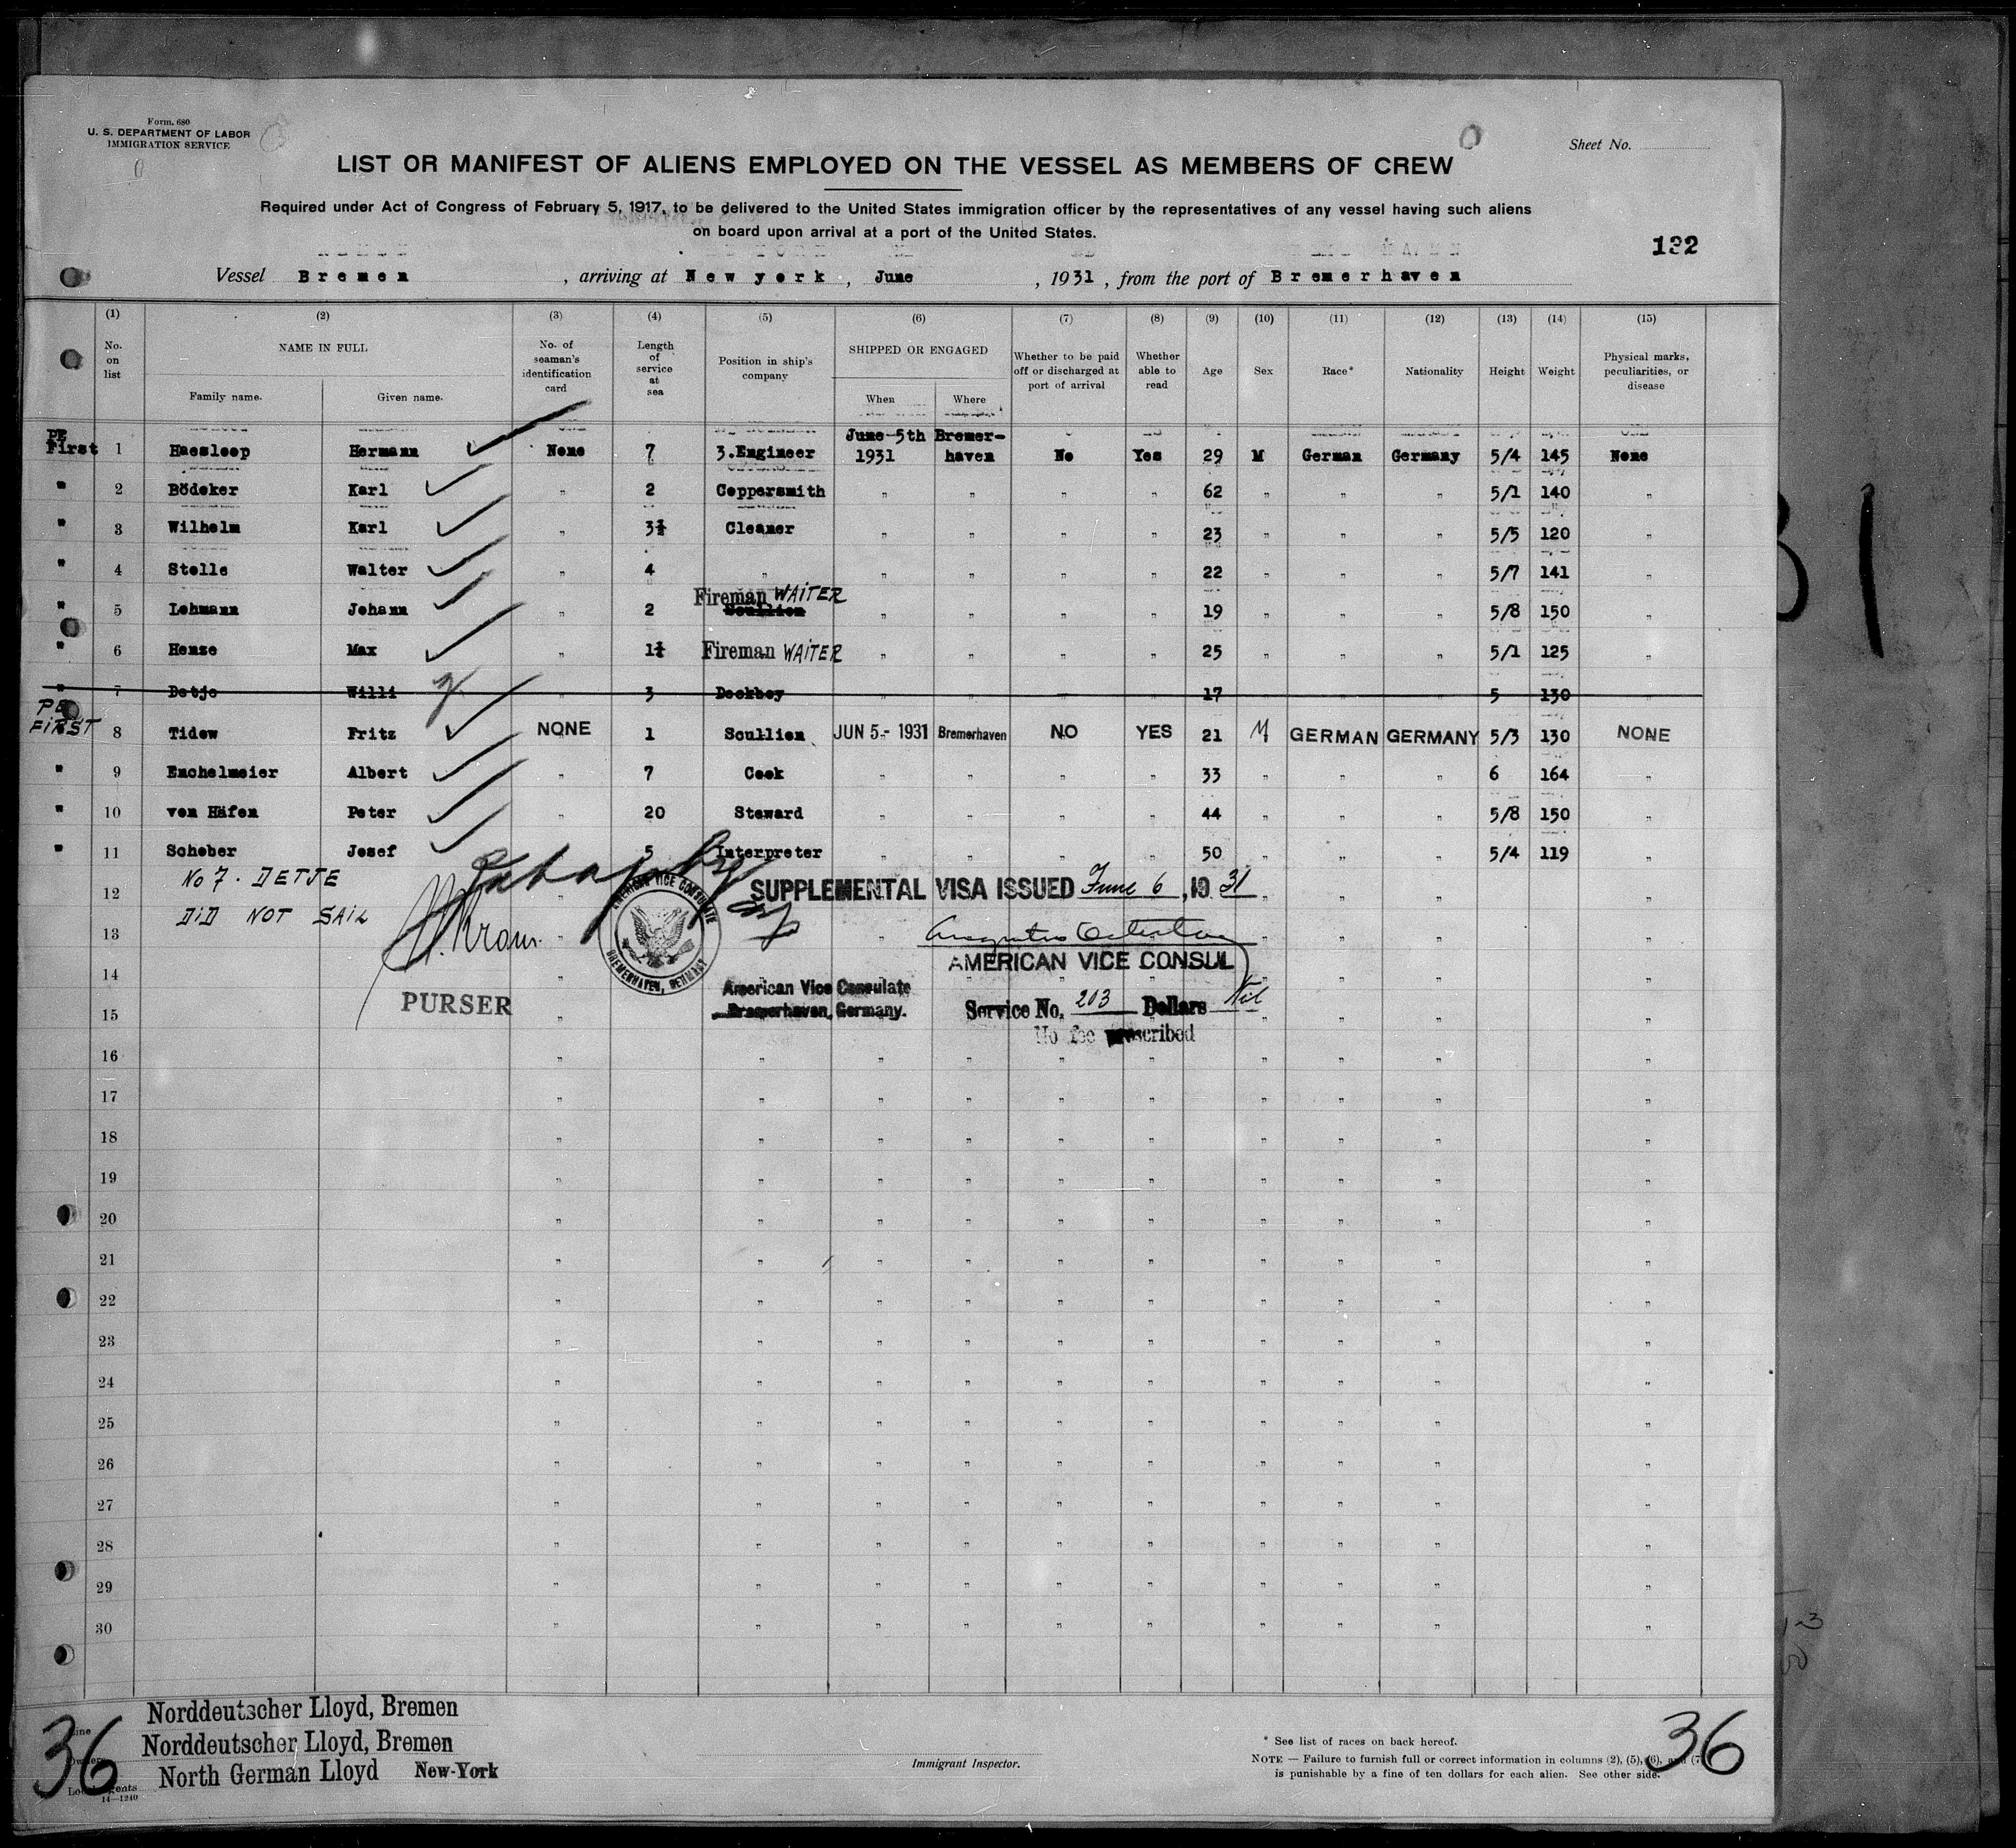 Form. 680
U. S. DEPARTMENT OF LABOR
IMMIGRATION SERVICE
Sheet No.
LIST OR MANIFEST OF ALIENS EMPLOYED ON THE VESSEL AS MEMBERS OF CREW
Required under Act of Congress of February 5, 1917, to be delivered to the United States immigration officer by the representatives of any vessel having such aliens
on board upon arrival at a port of the United States.
132
Vessel Bremen, arriving at New york, June, 1931, from the port of Bremerhaven
(1) (2) (3) (4) (5) (6) (7) (8) (9) (10) (11) (12) (13) (14) (15)
No. on list NAME IN FULL Family name. Given name. No. of seaman's identification card Length of service at sea Position in ship's company SHIPPED OR ENGAGED When Where Whether to be paid off or discharged at port of arrival Whether able to read Age Sex Race* Nationality Height Weight Physical marks, peculiarities, or disease
PE First 1 Haesloop Hermann None 7 3.Engineer June 5th 1931 Bremer-haven No Yes 29 M German Germany 5/4 145 None
" 2 Bödeker Karl " 2 Coppersmith " " " " 62 " " " 5/1 140 "
" 3 Wilhelm Karl " 3½ Cleaner " " " " 23 " " " 5/5 120 "
" 4 Stelle Walter " 4 " " " " " 22 " " " 5/7 141 "
" 5 Lehmann Johann " 2 Fireman WAITER Scullion " " " " 19 " " " 5/8 150 "
" 6 Hense Max " 1½ Fireman WAITER " " " " 25 " " " 5/1 125 "
" 7 Detje Willi " 3 Deckboy " " " " 17 " " " 5 130 "
PE FIRST 8 Tidow Fritz NONE 1 Scullion JUN 5- 1931 Bremerhaven NO YES 21 M GERMAN GERMANY 5/3 130 NONE
" 9 Enchelmeier Albert " 7 Cook " " " " 33 " " " 6 164 "
" 10 von Häfen Peter " 20 Steward " " " " 44 " " " 5/8 150 "
" 11 Schober Josef " 5 Interpreter " " " " 50 " " " 5/4 119 "
12 No 7. DETJE
DID NOT SAIL
SUPPLEMENTAL VISA ISSUED June 6, 19 31
13
AMERICAN VICE CONSULATE
BREMERHAVEN, GERMANY
AMERICAN VICE CONSUL
14
PURSER
American Vice Consulate
Bremerhaven, Germany.
15
Service No. 203 Dollars Nil
No fee prescribed
16
17
18
19
20
21
22
23
24
25
26
27
28
29
30
36
Line Norddeutscher Lloyd, Bremen
Owners Norddeutscher Lloyd, Bremen
Local Agents North German Lloyd New-York
14—1240
Immigrant Inspector.
* See list of races on back hereof.
NOTE — Failure to furnish full or correct information in columns (2), (5), (6), and (7)
is punishable by a fine of ten dollars for each alien. See other side.
36